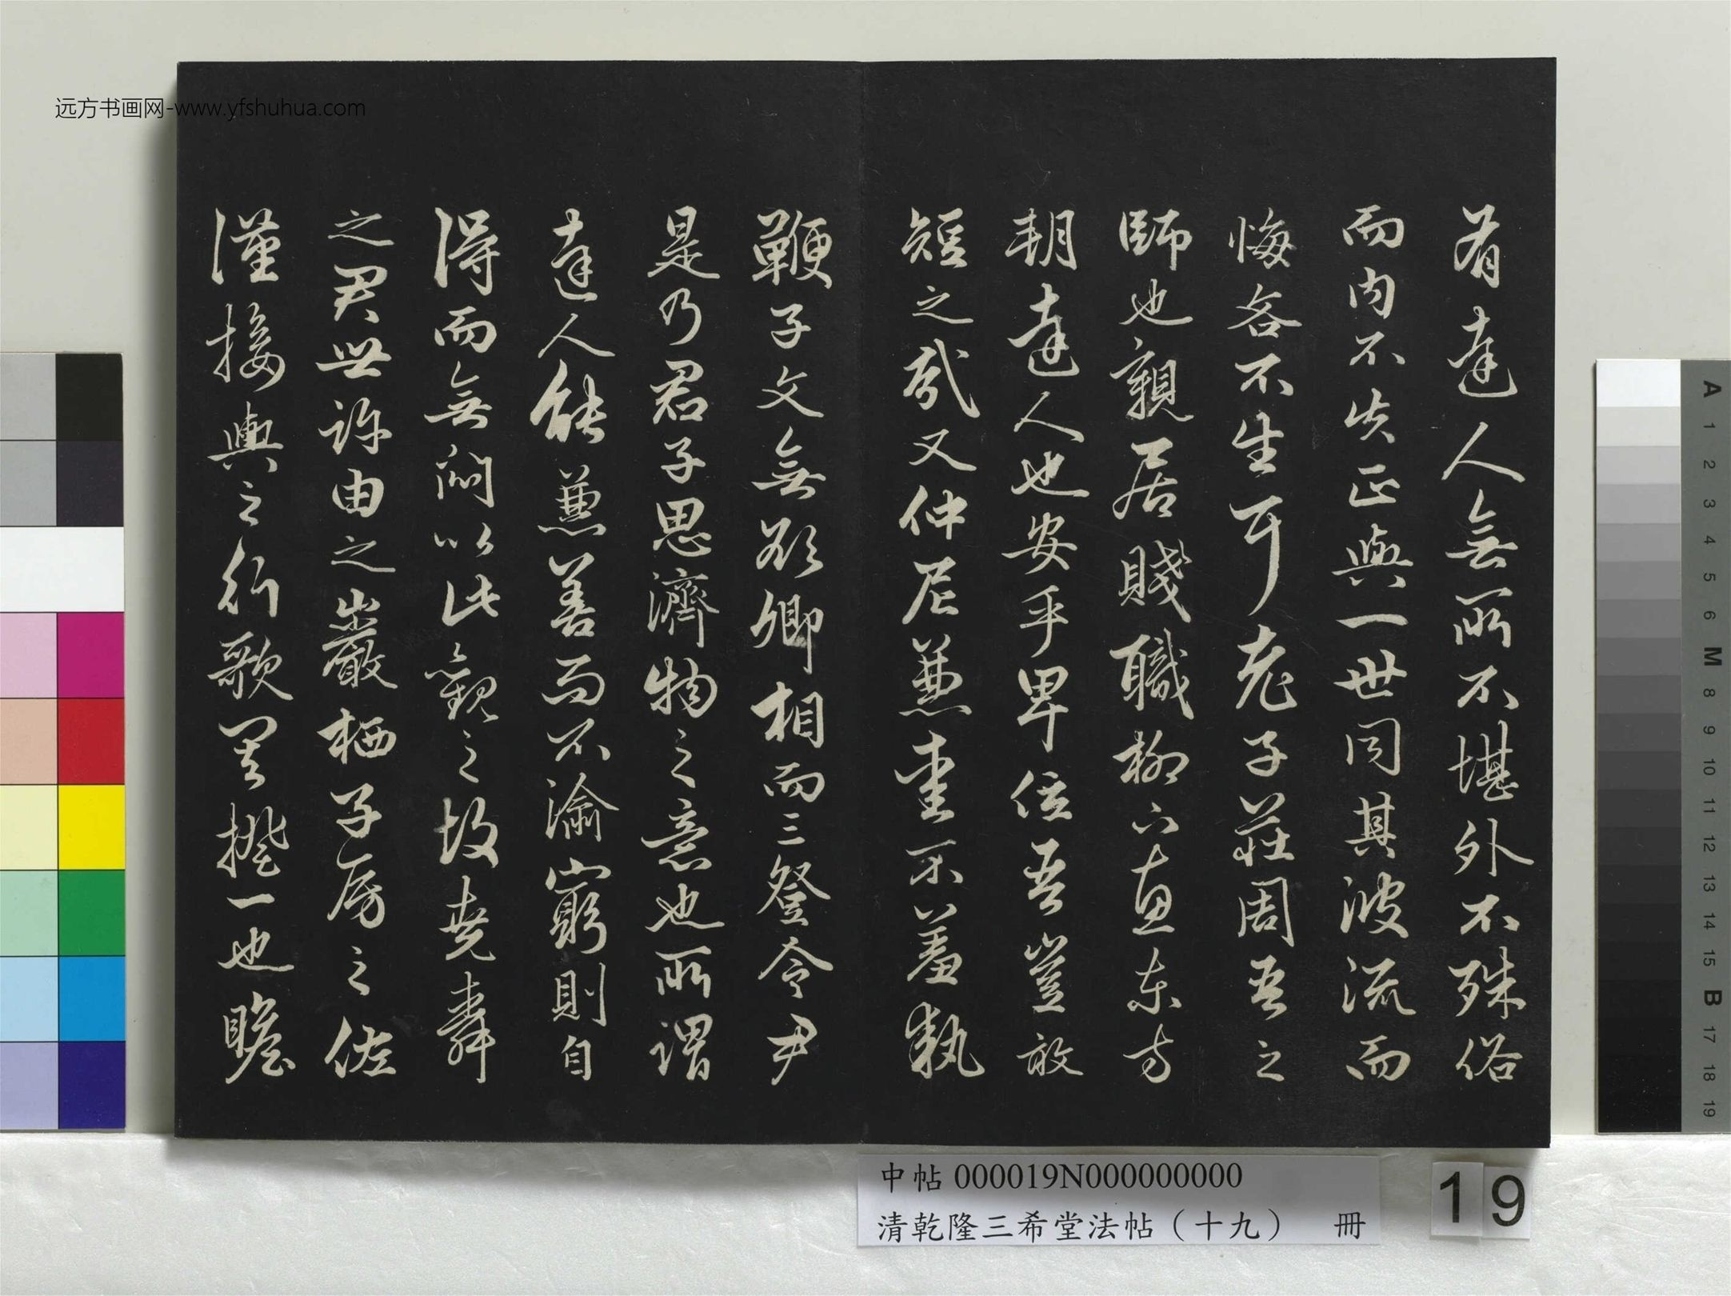 有達人無所不堪外不殊俗
而内不失正與一世同其波流而
悔吝不生耳老子莊周吾之
師也親居賤職柳下惠東方
朔達人也安乎卑位吾豈敢
短之哉又仲尼兼愛不羞執
鞭子文無欲卿相而三登令尹
是乃君子思濟物之意也所謂
達人能兼善而不渝窮則自
得而無悶以此觀之故堯舜
之君世許由之巖栖子房之佐
漢接輿之行歌其揆一也瞻
远方书画网-www.yfshuhua.com
中帖 000019N000000000
清乾隆三希堂法帖（十九） 冊
19
A
1
2
3
4
5
6
M
8
9
10
11
12
13
14
15
B
17
18
19